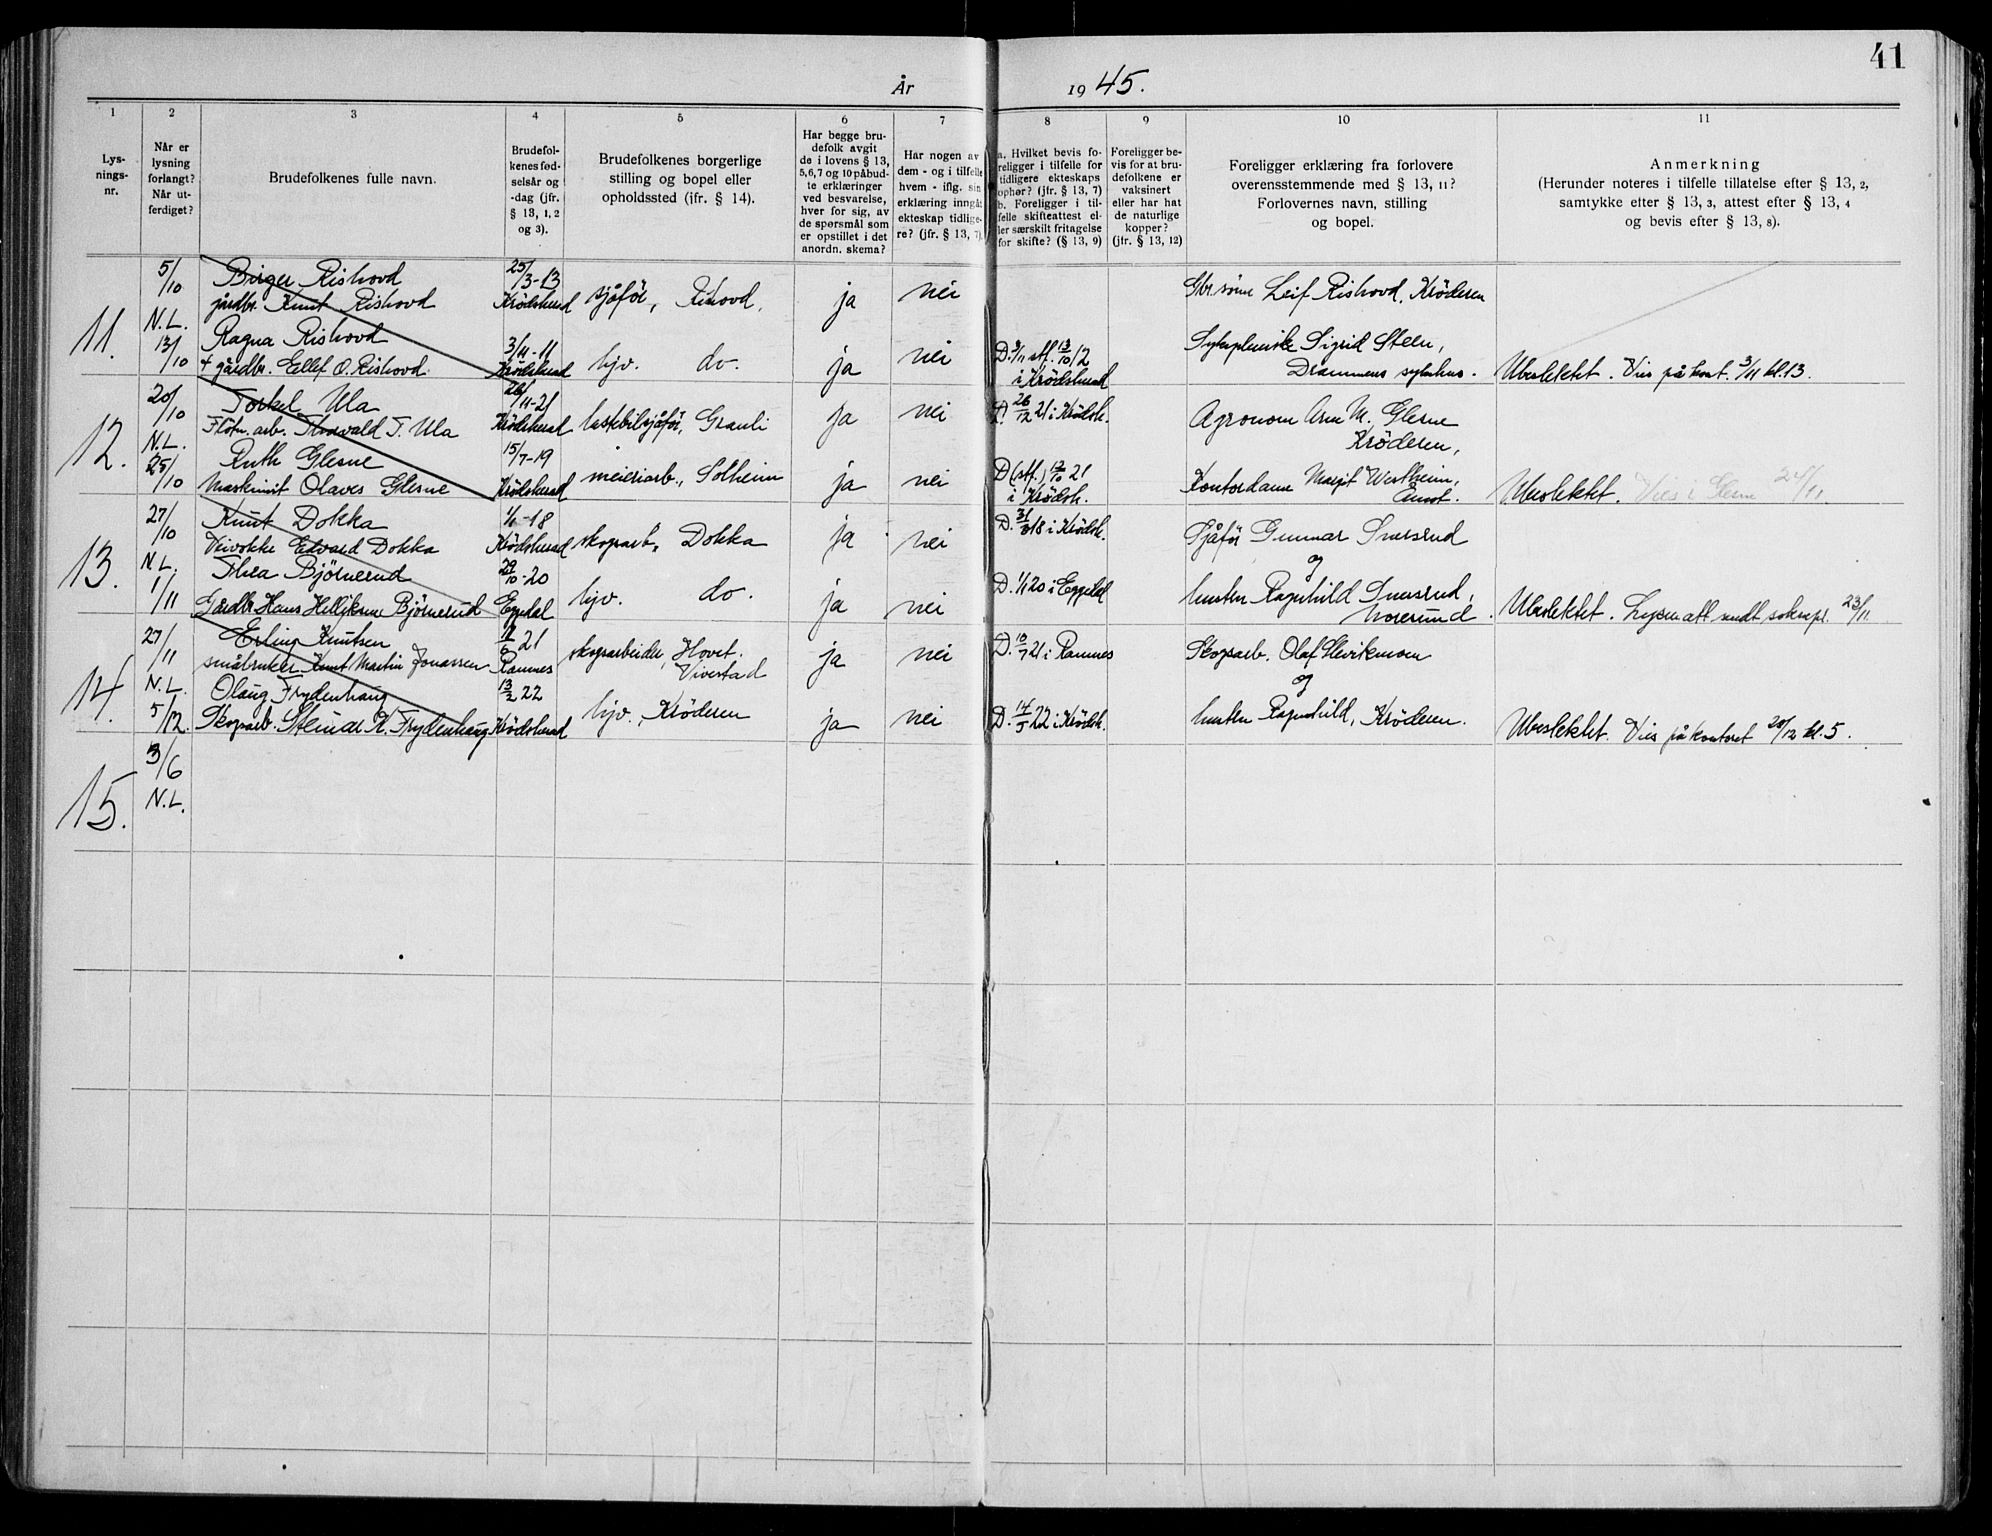 41
År 1945.
1 2 3 4 5 6 7 8 9 10 11
Lys-
nings-
nr.
Når er
lysning
forlangt?
Når ut-
ferdiget?
Brudefolkenes fulle navn.
Brudefol-
kenes fød-
selsår og
-dag (jfr.
§ 13, 1, 2
og 3).
Brudefolkenes borgerlige
stilling og bopel eller
opholdssted (ifr. § 14).
Har begge bru-
defolk avgit
de i lovens § 13,
5,6,7 og 10 påbud-
te erklæringer
ved besvarelse,
hver for sig, av
de spørsmål som
er opstillet i det
anordn. skema?
Har nogen av
dem - og i tilfelle
hvem - iflg. sin
erklæring inngåt
ekteskap tidlige-
re? (jfr. § 13, 7).
a. Hvilket bevis fo-
religger i tilfelle for
tidligere ekteskaps
ophør? (jfr. § 13, 7)
b. Foreligger i til-
felle skifteattest el-
ler særskilt fritagelse
for skifte? (§ 13, 9)
Foreligger be-
vis for at bru-
defolkene er
vaksinert
eller har hat
de naturlige
kopper?
(jfr. § 13, 12)
Foreligger erklæring fra forlovere
overensstemmende med § 13, 11?
Forlovernes navn, stilling
og bopel.
Anmerkning
(Herunder noteres i tilfelle tillatelse efter § 13, 2,
samtykke efter § 13, 3, attest efter § 13, 4
og bevis efter § 13, 8).
11.
5/10 Birger Rishovd 25/3-13 sjåfør, Rishovd, ja nei Gbr.sønn Leif Rishovd, Krøderen
gårdbr. Knut Rishovd Krødsherad
N.L.
13/10 Ragna Rishovd 3/11-11 hjv. do. ja nei D. 3/11 stf. 13/10 12 Sykepleierske Sigrid Steen,
+ gårdbr. Ellef O. Rishovd. Krødsherad i Krødsherad Drammens sykehus. Ubeslektet. Vies på kont. 3/11 kl.13.
12.
20/10 Torkel Ula 26/11-21 lastebilsjåfør, Grauli ja nei D. 26/12 21 i Krødsh. Agronom Arne M. Glesne
Fløtn.arb. Thorvald T. Ula Krødsherad Krøderen,
N.L.
25/10 Ruth Glesne 15/7-19 meieriarb., Solheim ja nei D (stf.) 12/10 21 Kontordame Margit Westheim,
Maskinist Olaves Glesne Krødsherad i Krødsh. Åmot. Ubeslektet. Vies i Glesne 24/11.
13.
27/10 Knut Dokka 1/1-18 skogsarb., Dokka ja nei D. 31/3 18 i Krødsh. Sjåfør Gunnar Snersrud
Veivokter Edvard Dokka Krødsherad og
N.L.
1/11 Thea Bjørnerud 29/10-20 hjv. do. ja nei D. 1/1 20 i Eggedal hustru Ragnhild Snersrud,
Gårdbr. Hans Helliksen Bjørnerud Eggedal Noresund. Ubeslektet. Lysn.att. sendt soknepr. 23/11.
14.
27/11 Erling Knutsen 21 skogsarbeider, Hovet. ja nei D. 10/7 21 i Ramnes Skogsarb. Olaf Slevikmoen
småbruker Knut Martin Jonassen Ramnes Vivestad og
N.L.
5/12. Olaug Frydenhaug 13/2 22 hjv., Krøderen ja nei D. 14/5 22 i Krødsh. hustru Ragnhild, Krøderen.
Skogsarb. Steinar K. Frydenhaug Krødsherad Ubeslektet. Vies på kontoret 20/12 kl. 5.
15.
3/6
N.L.